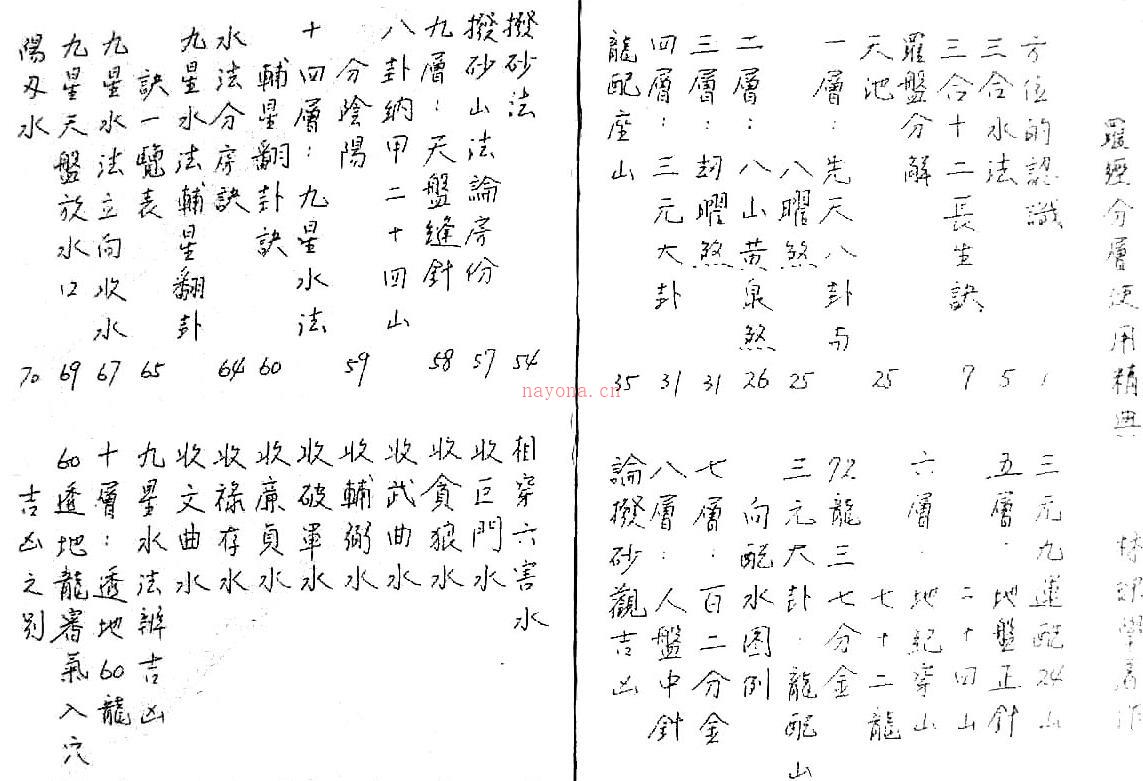 羅經分層使用精典
學著作
方位的認識 1
三合水法 5
三合十二長生訣 7
羅盤分解
天池 25
一層：先天八卦与
八曜煞 25
二層：八山黃泉煞 26
三層：刼曜煞 31
四層：三元大卦 31
龍配座山 35
三元九運配24山
五層：地盤正針
二十四山
六層：地紀穿山
七十二龍
72龍三七分金
三元大卦：龍配山
向配水图例
七層：百二分金
八層：人盤中針
論撥砂觀吉凶
撥砂法 54
撥砂山法論房份 57
九層：天盤縫針 58
八卦納甲二十四山
分陰陽 59
十四層：九星水法
輔星翻卦訣 60
水法分房訣 64
九星水法輔星翻卦
訣一覽表 65
九星水法立向收水 67
九星天盤放水口 69
陽刃水 70
相穿六害水
收巨門水
收貪狼水
收武曲水
收輔弼水
收破軍水
收廉貞水
收祿存水
收文曲水
九星水法辨吉凶
十層：透地60龍
60透地龍審氣入穴
吉凶之別
nayona.cn